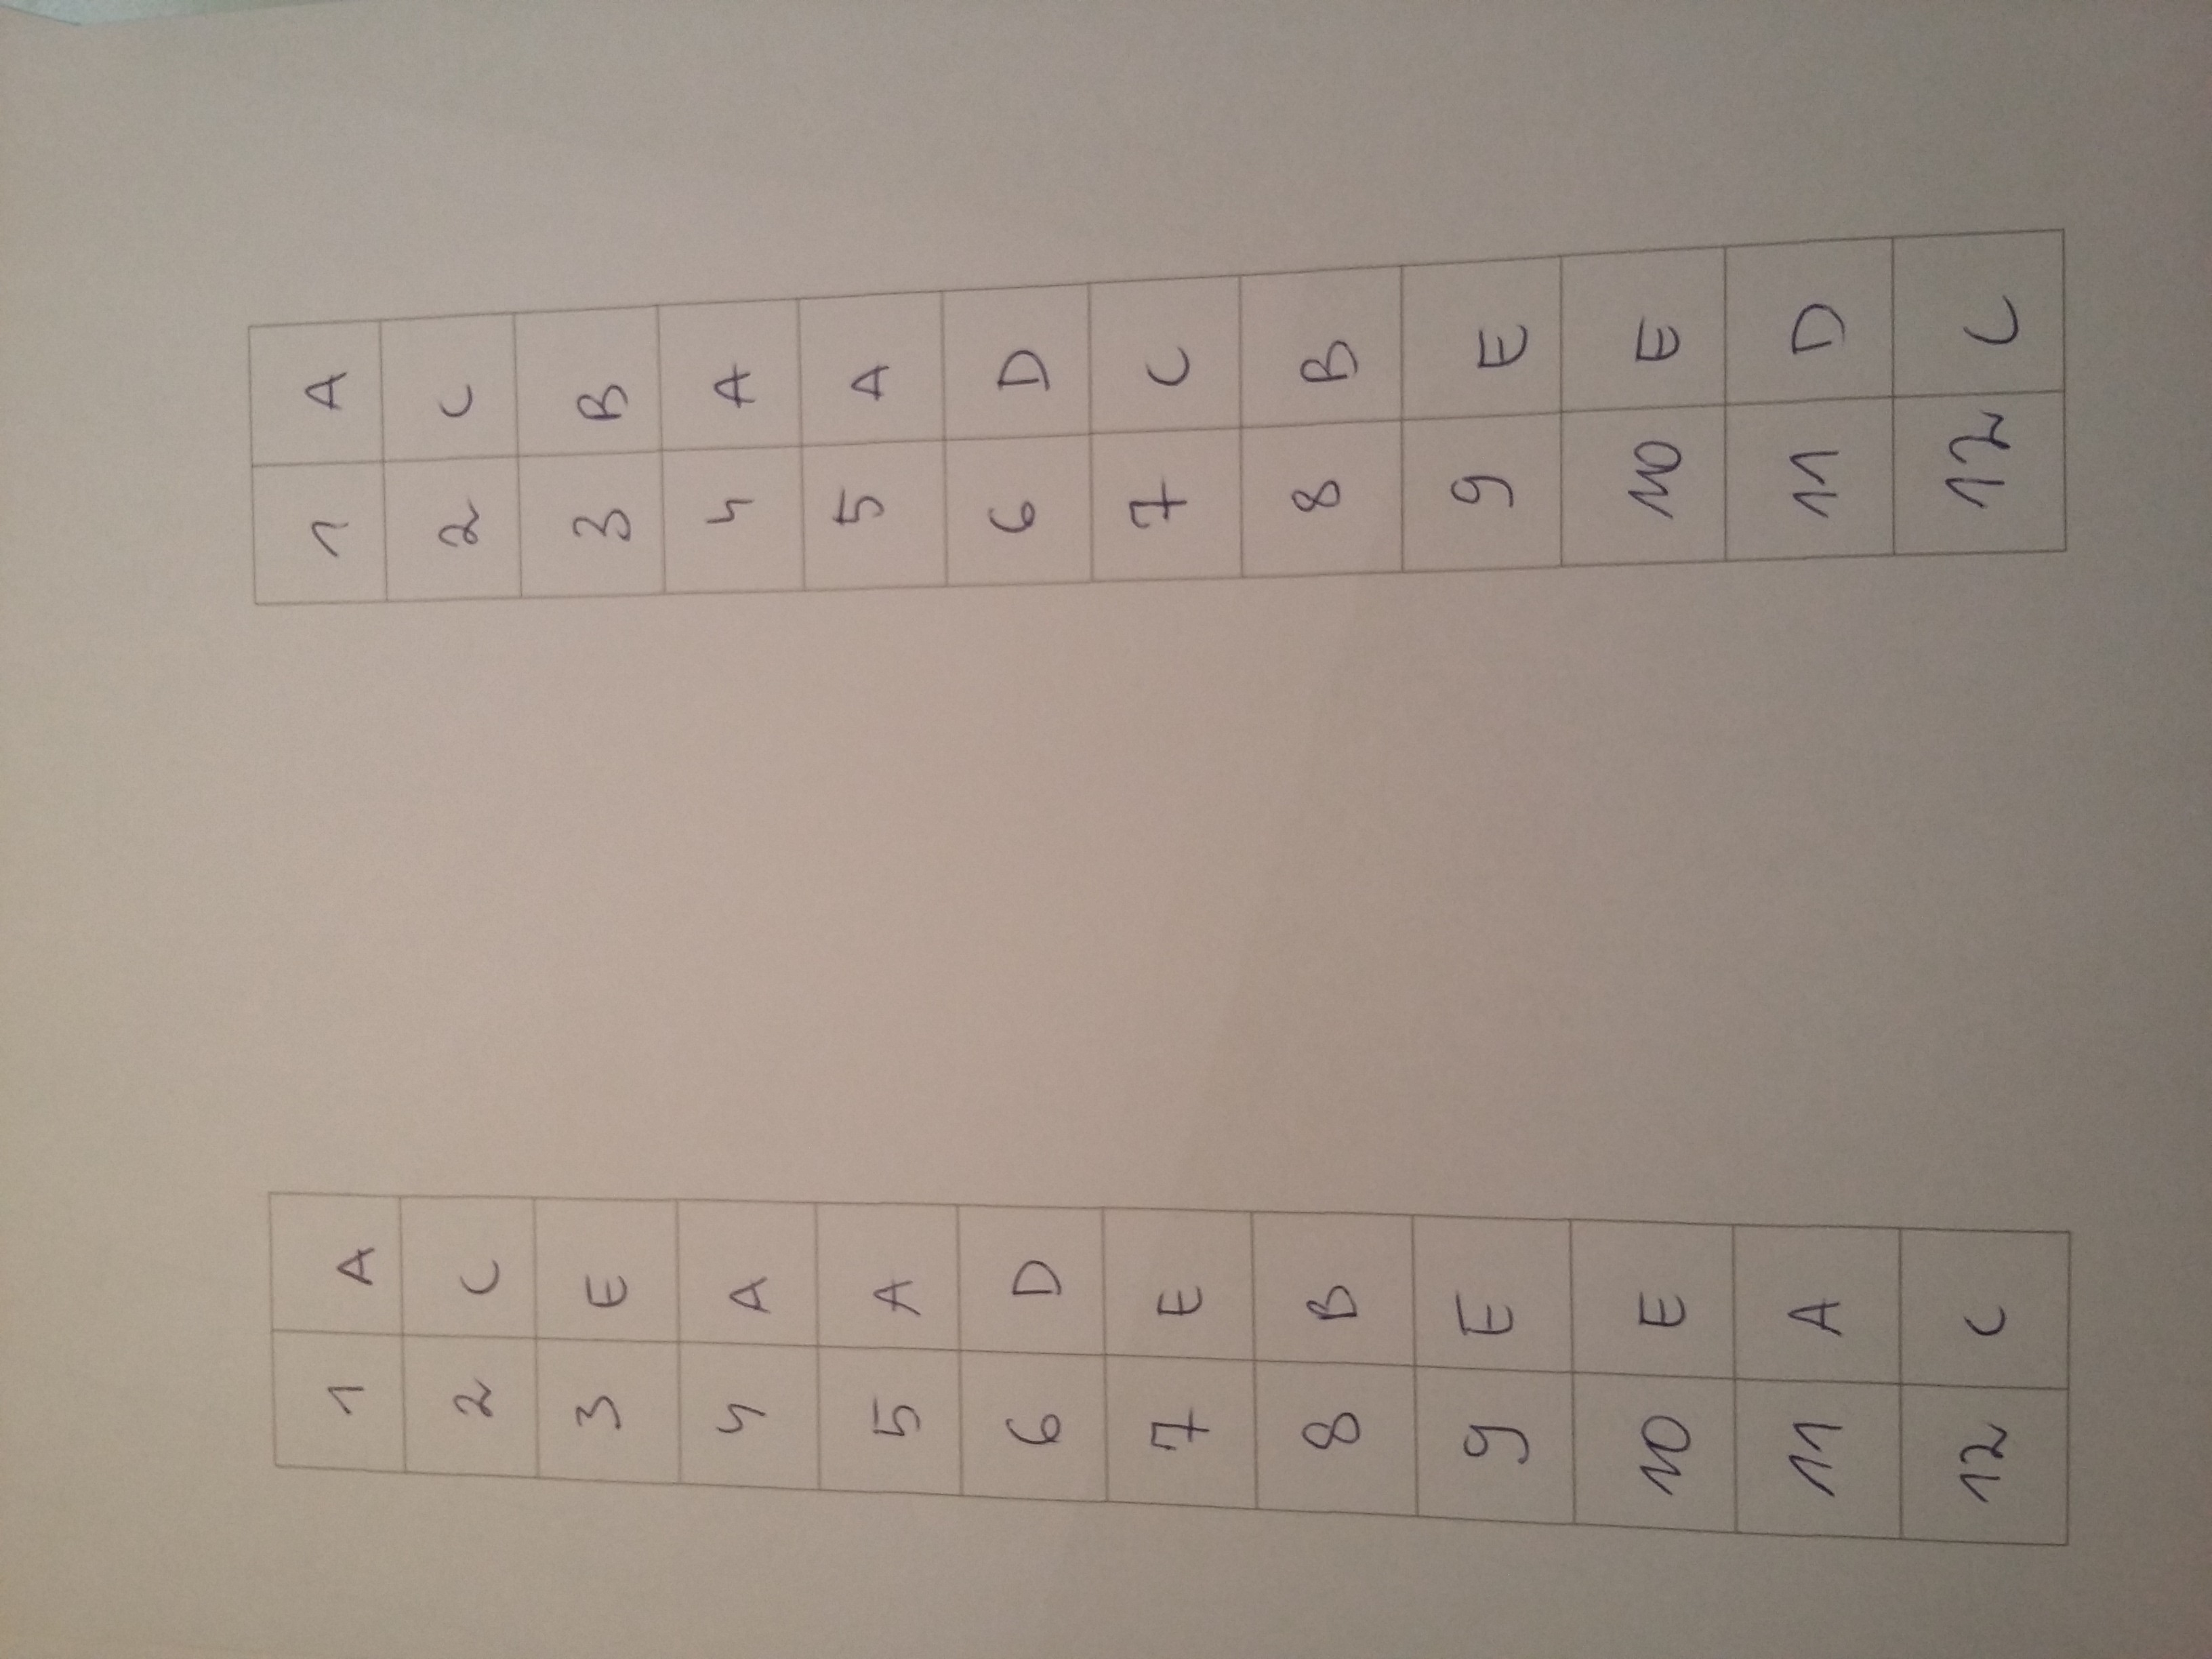 1 A
2 C
3 E
4 A
5 A
6 D
7 E
8 B
9 E
10 E
11 A
12 C
1 A
2 C
3 B
4 A
5 A
6 D
7 C
8 B
9 E
10 E
11 D
12 C